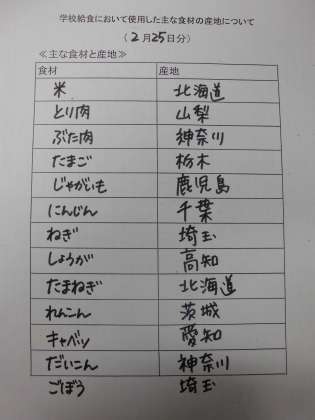 学校給食において使用した主な食材の産地について
(2月25日分)
≪主な食材と産地≫
食材 産地
米 北海道
とり肉 山梨
ぶた肉 神奈川
たまご 栃木
じゃがいも 鹿児島
にんじん 千葉
ねぎ 埼玉
しょうが 高知
たまねぎ 北海道
れんこん 茨城
キャベツ 愛知
だいこん 神奈川
ごぼう 埼玉